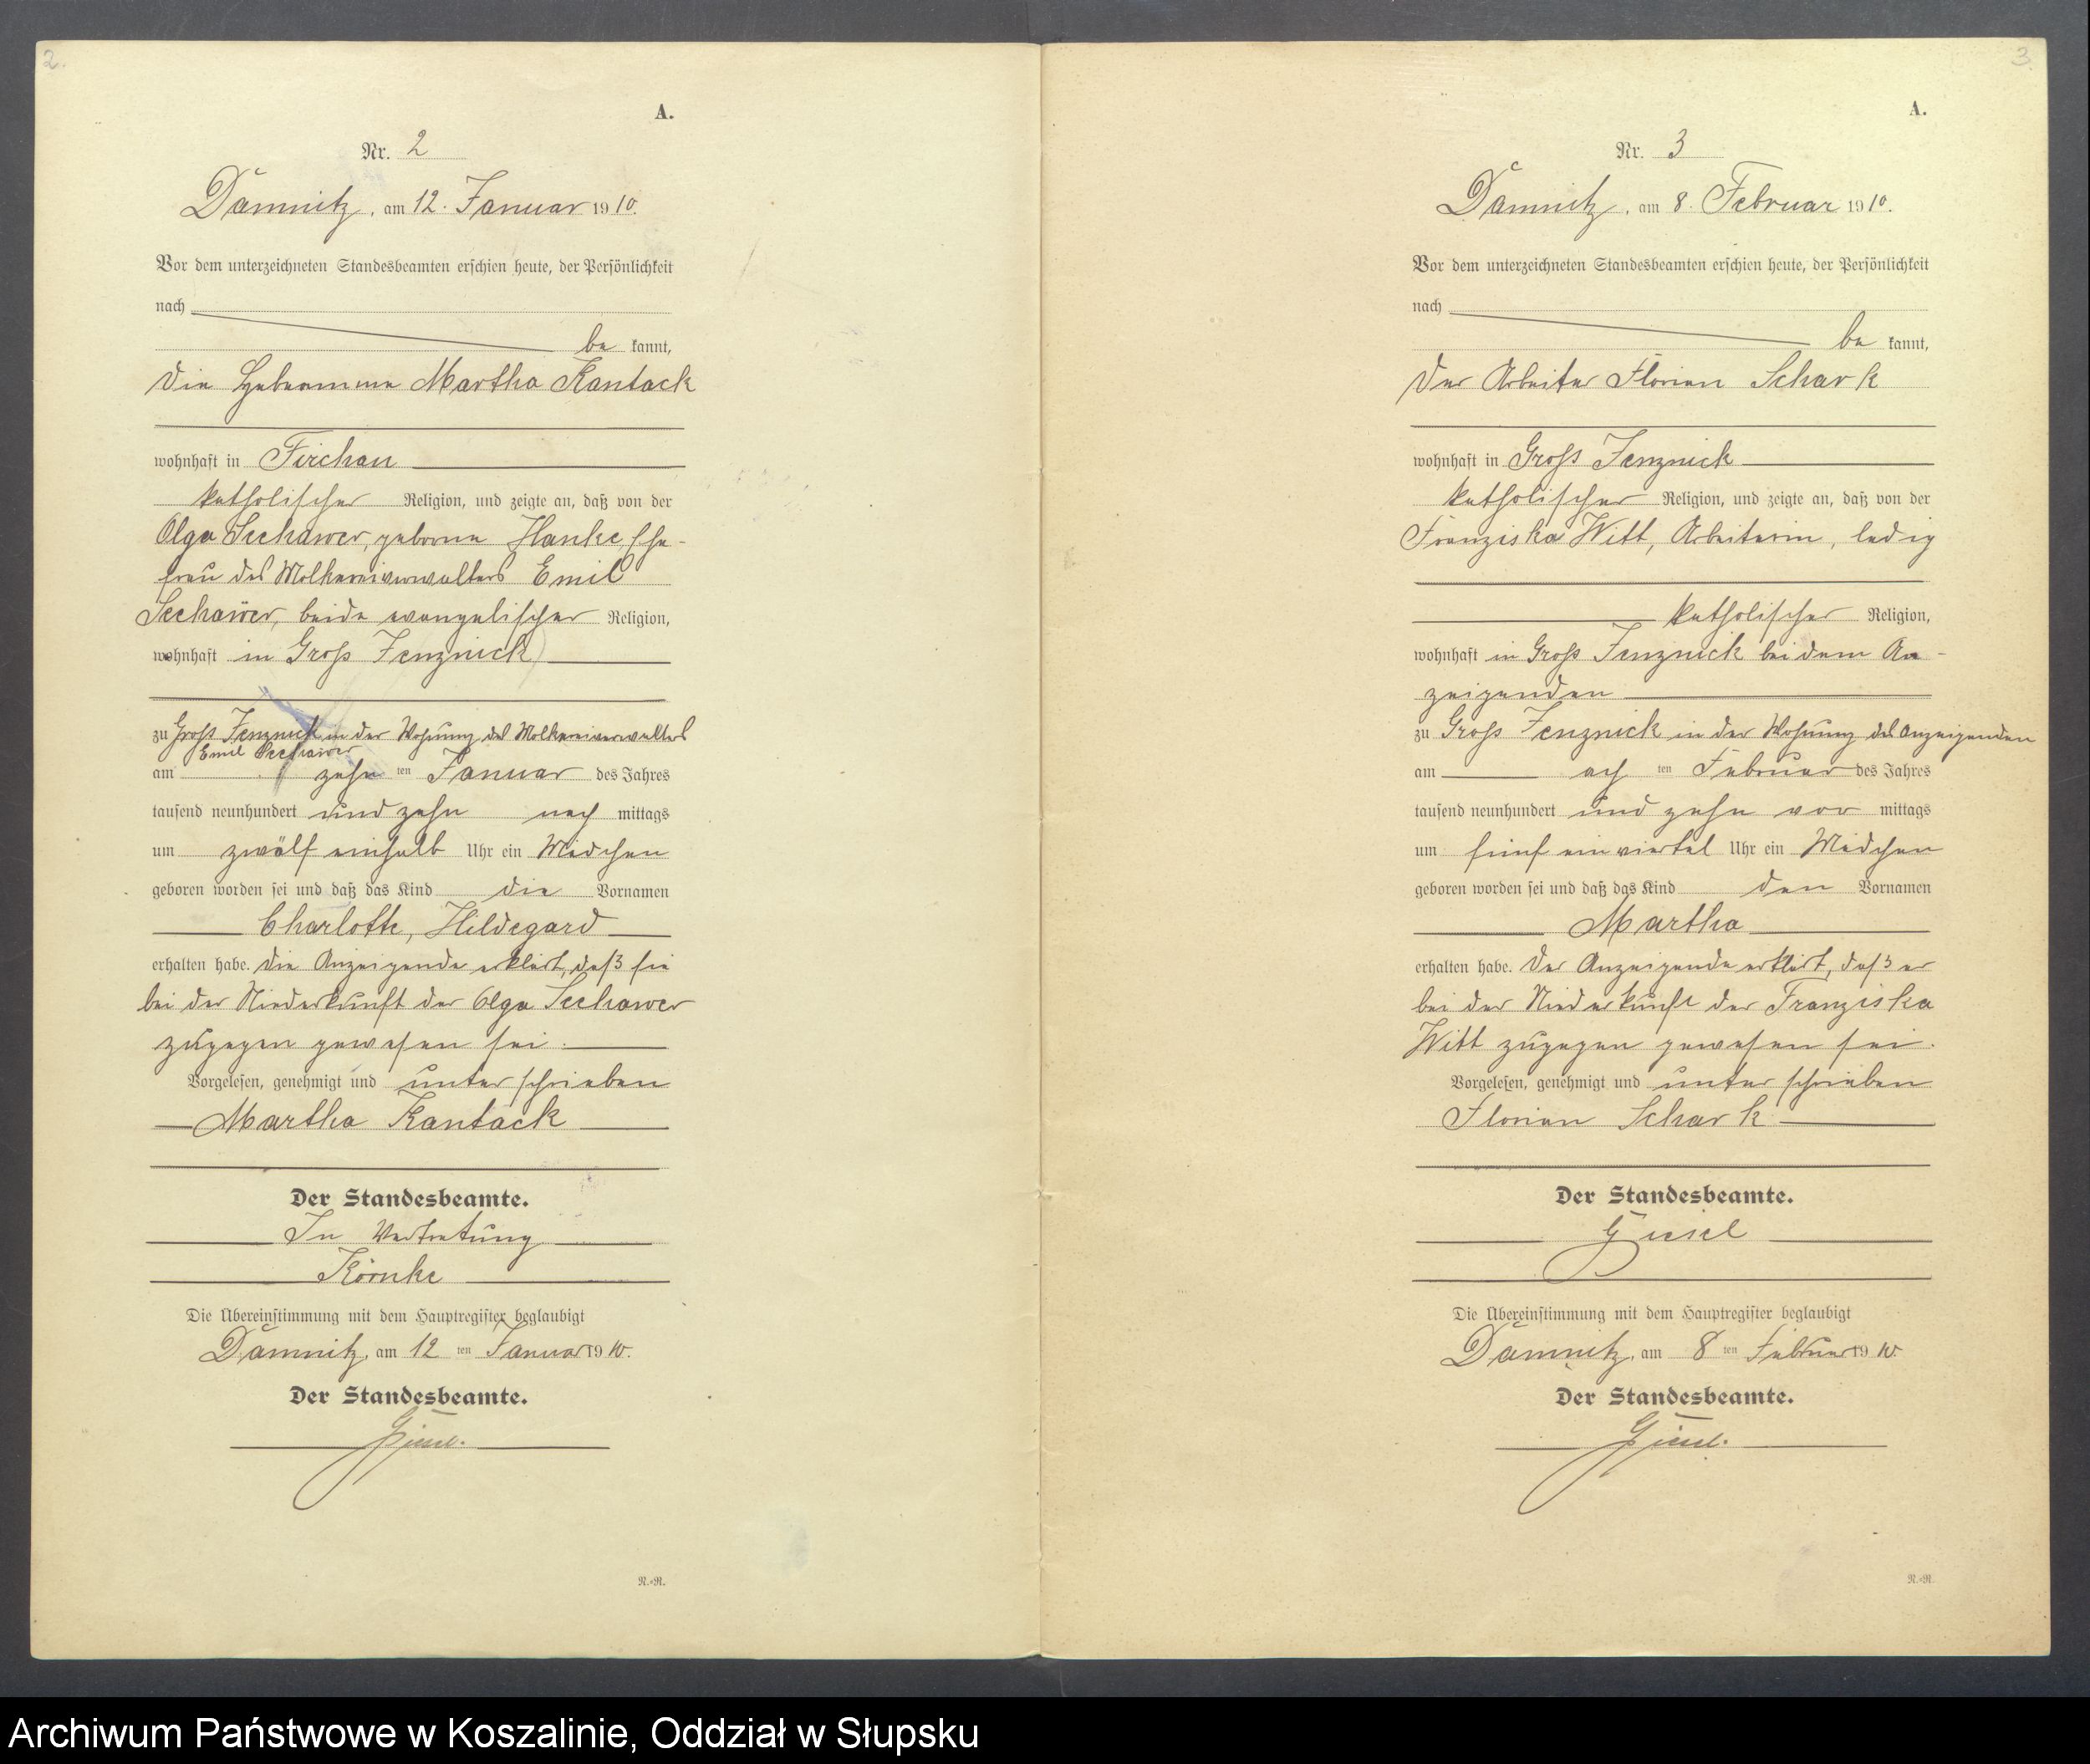 2.
A.
Nr. 2
Damnitz, am 12. Januar 1910.
Vor dem unterzeichneten Standesbeamten erschien heute, der Persönlichkeit
nach
be kannt,
die Hebamme Martha Kantack
wohnhaft in Firchau
katholischer Religion, und zeigte an, daß von der
Olga Seehawer, geborne Hanke, Ehe-
frau des Molkereiverwalters Emil
Seehawer, beide evangelischer Religion,
wohnhaft in Groß Jenznick
zu Groß Jenznick in der Wohnung des Molkereiverwalters
Emil Seehawer
am zehnten Januar des Jahres
tausend neunhundert und zehn nach mittags
um zwölf einhalb Uhr ein Mädchen
geboren worden sei und daß das Kind die Vornamen
Charlotte, Hildegard
erhalten habe. Die Anzeigende erklärt, daß sie
bei der Niederkunft der Olga Seehawer
zugegen gewesen sei.
Vorgelesen, genehmigt und unterschrieben
Martha Kantack
Der Standesbeamte.
In Vertretung
Körnke
Die Übereinstimmung mit dem Hauptregister beglaubigt
Damnitz, am 12 ten Januar 1910.
Der Standesbeamte.
R.-R.
3.
A.
Nr. 3
Damnitz, am 8. Februar 1910.
Vor dem unterzeichneten Standesbeamten erschien heute, der Persönlichkeit
nach
be kannt,
der Arbeiter Florian Schark
wohnhaft in Groß Jenznick
katholischer Religion, und zeigte an, daß von der
Franziska Witt, Arbeiterin, ledig
katholischer Religion,
wohnhaft in Groß Jenznick bei dem An-
zeigenden
zu Groß Jenznick in der Wohnung des Anzeigenden
am ach ten Februar des Jahres
tausend neunhundert und zehn vor mittags
um fünf einviertel Uhr ein Mädchen
geboren worden sei und daß das Kind den Vornamen
Martha
erhalten habe. Der Anzeigende erklärt, daß er
bei der Niederkunft der Franziska
Witt zugegen gewesen sei.
Vorgelesen, genehmigt und unterschrieben
Florian Schark
Der Standesbeamte.
Die Übereinstimmung mit dem Hauptregister beglaubigt
Damnitz, am 8 ten Februar 1910.
Der Standesbeamte.
R.-R.
Archiwum Państwowe w Koszalinie, Oddział w Słupsku